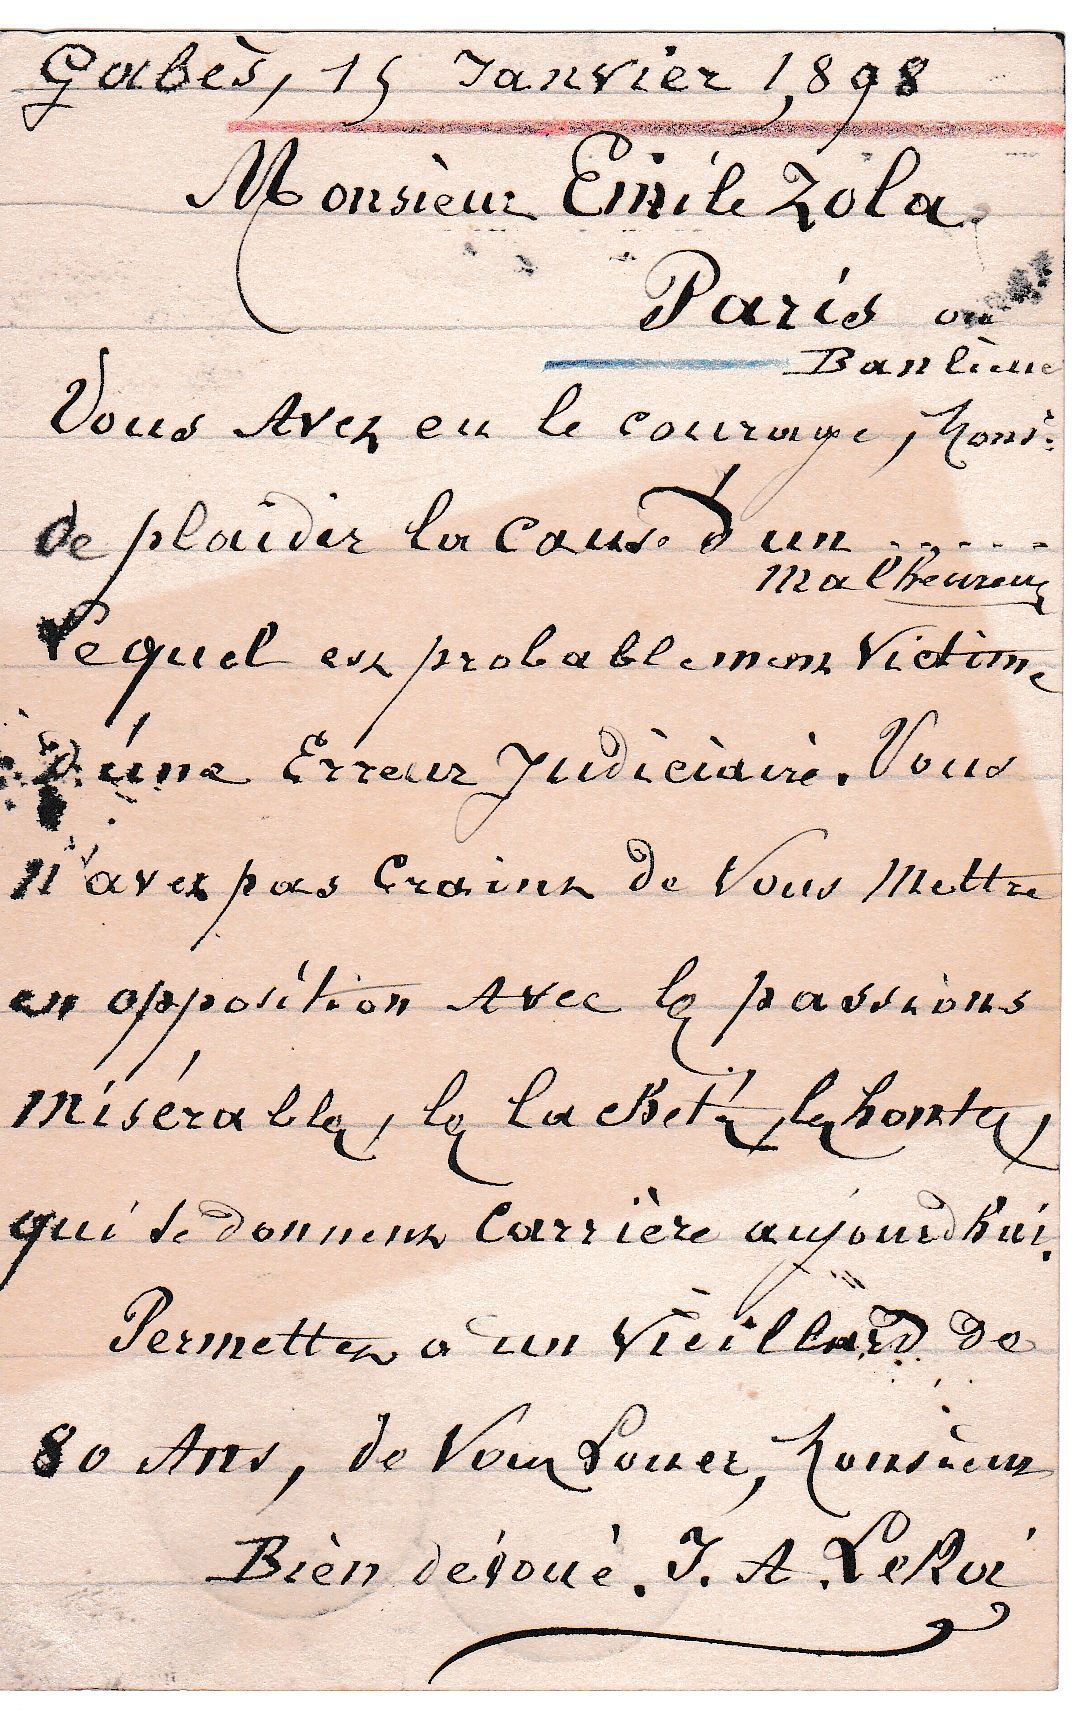 Gabès, 15 Janvier 1,898
Monsieur Emile Zola
Paris ou
Banlieue
Vous Avez eu le courage, Monsr
de plaidir la cause d'un .....
Malheureux
lequel est probablement Victime
d'une Erreur Judiciaire. Vous
n'avez pas Craint de Vous Mettre
en opposition Avec les passions
Misérables, les lachetés, les hontes,
qui se donnent Carrière aujourd'hui.
Permettez a un Vieillard de
80 Ans, de Vous Louer, Monsieur
Bien dévoué. J. A. LeRoi